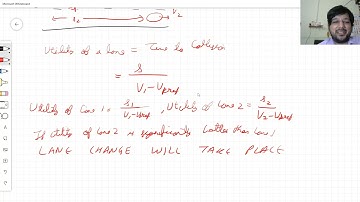 Microsoft Whiteboard
V2
Utility of a lane = Time to Collision
= s / V1 - Vpref
Utility of lane 1 = s1 / V1 - Vpref , Utility of lane 2 = s2 / V2 - Vpref
If utility of lane 2 is significantly better than lane 1
LANE CHANGE WILL TAKE PLACE